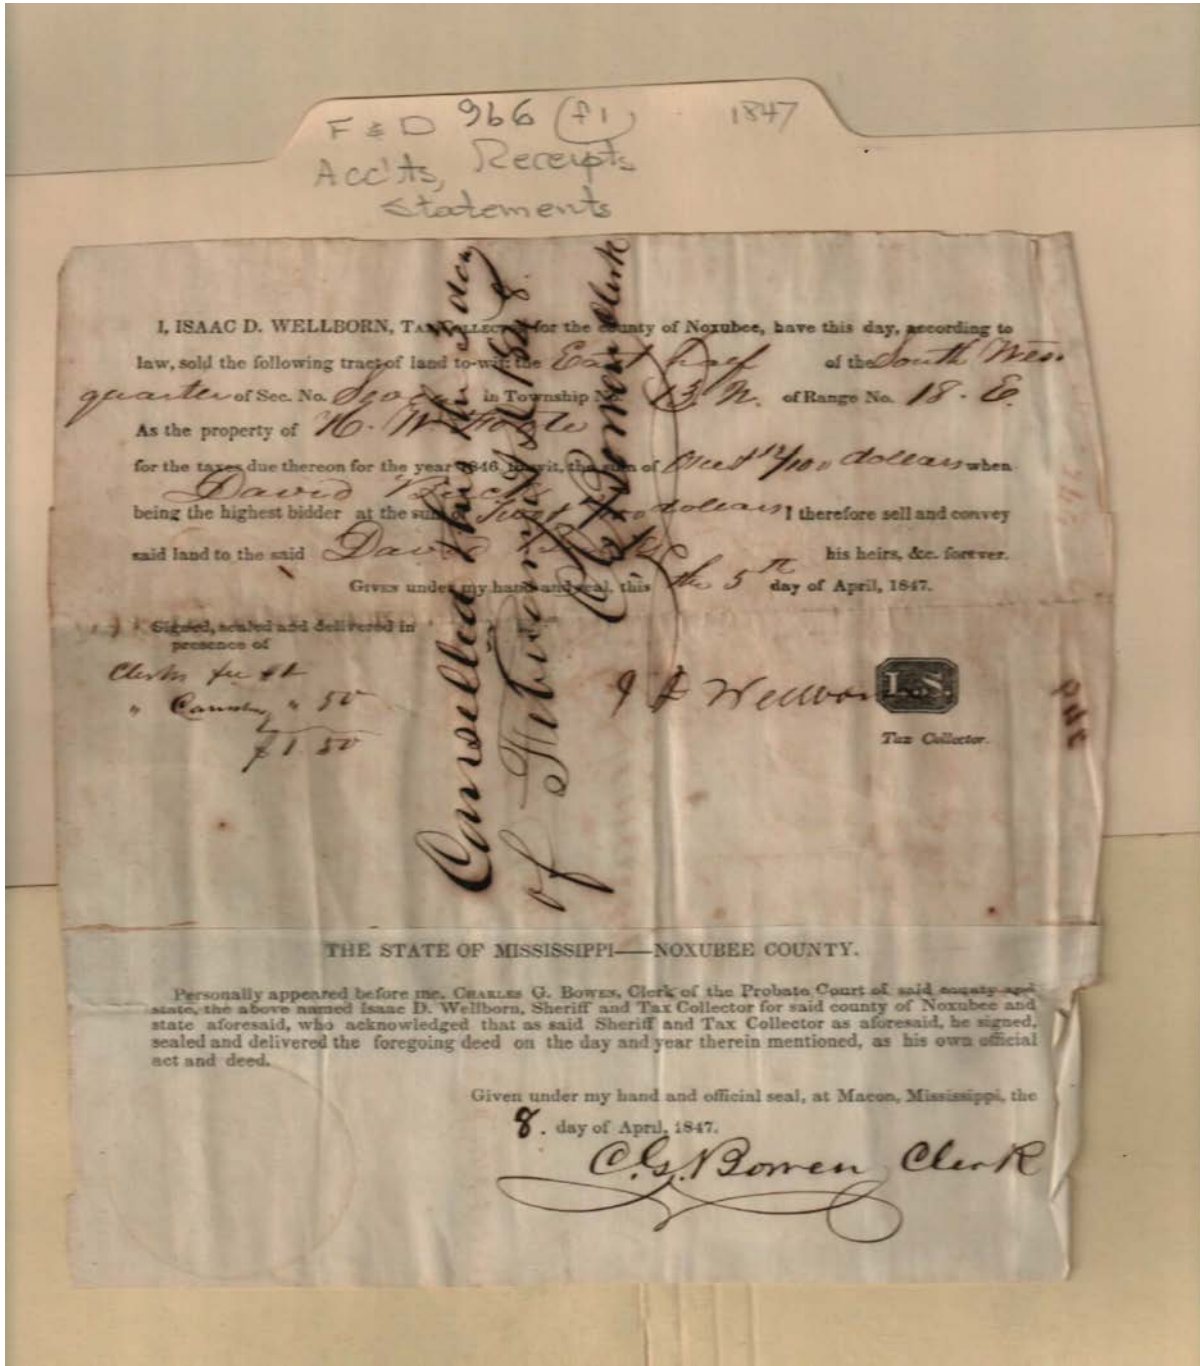 F & D 966 (f1) 1847
Acc'ts, Receipts
Statements
I, ISAAC D. WELLBORN, TAX COLLECTOR for the county of Noxubee, have this day, according to
law, sold the following tract of land to-wit: the East half of the South West
quarter of Sec. No. in Township No. 13 N. of Range No. 18. E.
As the property of H. W. Foote
for the taxes due thereon for the year 1846, to wit, the sum of 12/100 dollars when
David
being the highest bidder at the sum of dollars I therefore sell and convey
said land to the said David his heirs, &c. forever.
GIVEN under my hand and seal, this the 5th day of April, 1847.
Signed, sealed and delivered in
presence of
Clerks fee $1
" " 50
$1 50
I D Wellborn L.S.
Tax Collector.
Canselled this the 3 day
of
C G Bowen Clerk
THE STATE OF MISSISSIPPI—NOXUBEE COUNTY.
Personally appeared before me, CHARLES G. BOWEN, Clerk of the Probate Court of said county and
state, the above named Isaac D. Wellborn, Sheriff and Tax Collector for said county of Noxubee and
state aforesaid, who acknowledged that as said Sheriff and Tax Collector as aforesaid, he signed,
sealed and delivered the foregoing deed on the day and year therein mentioned, as his own official
act and deed.
Given under my hand and official seal, at Macon, Mississippi, the
8. day of April, 1847.
C. G. Bowen Clerk